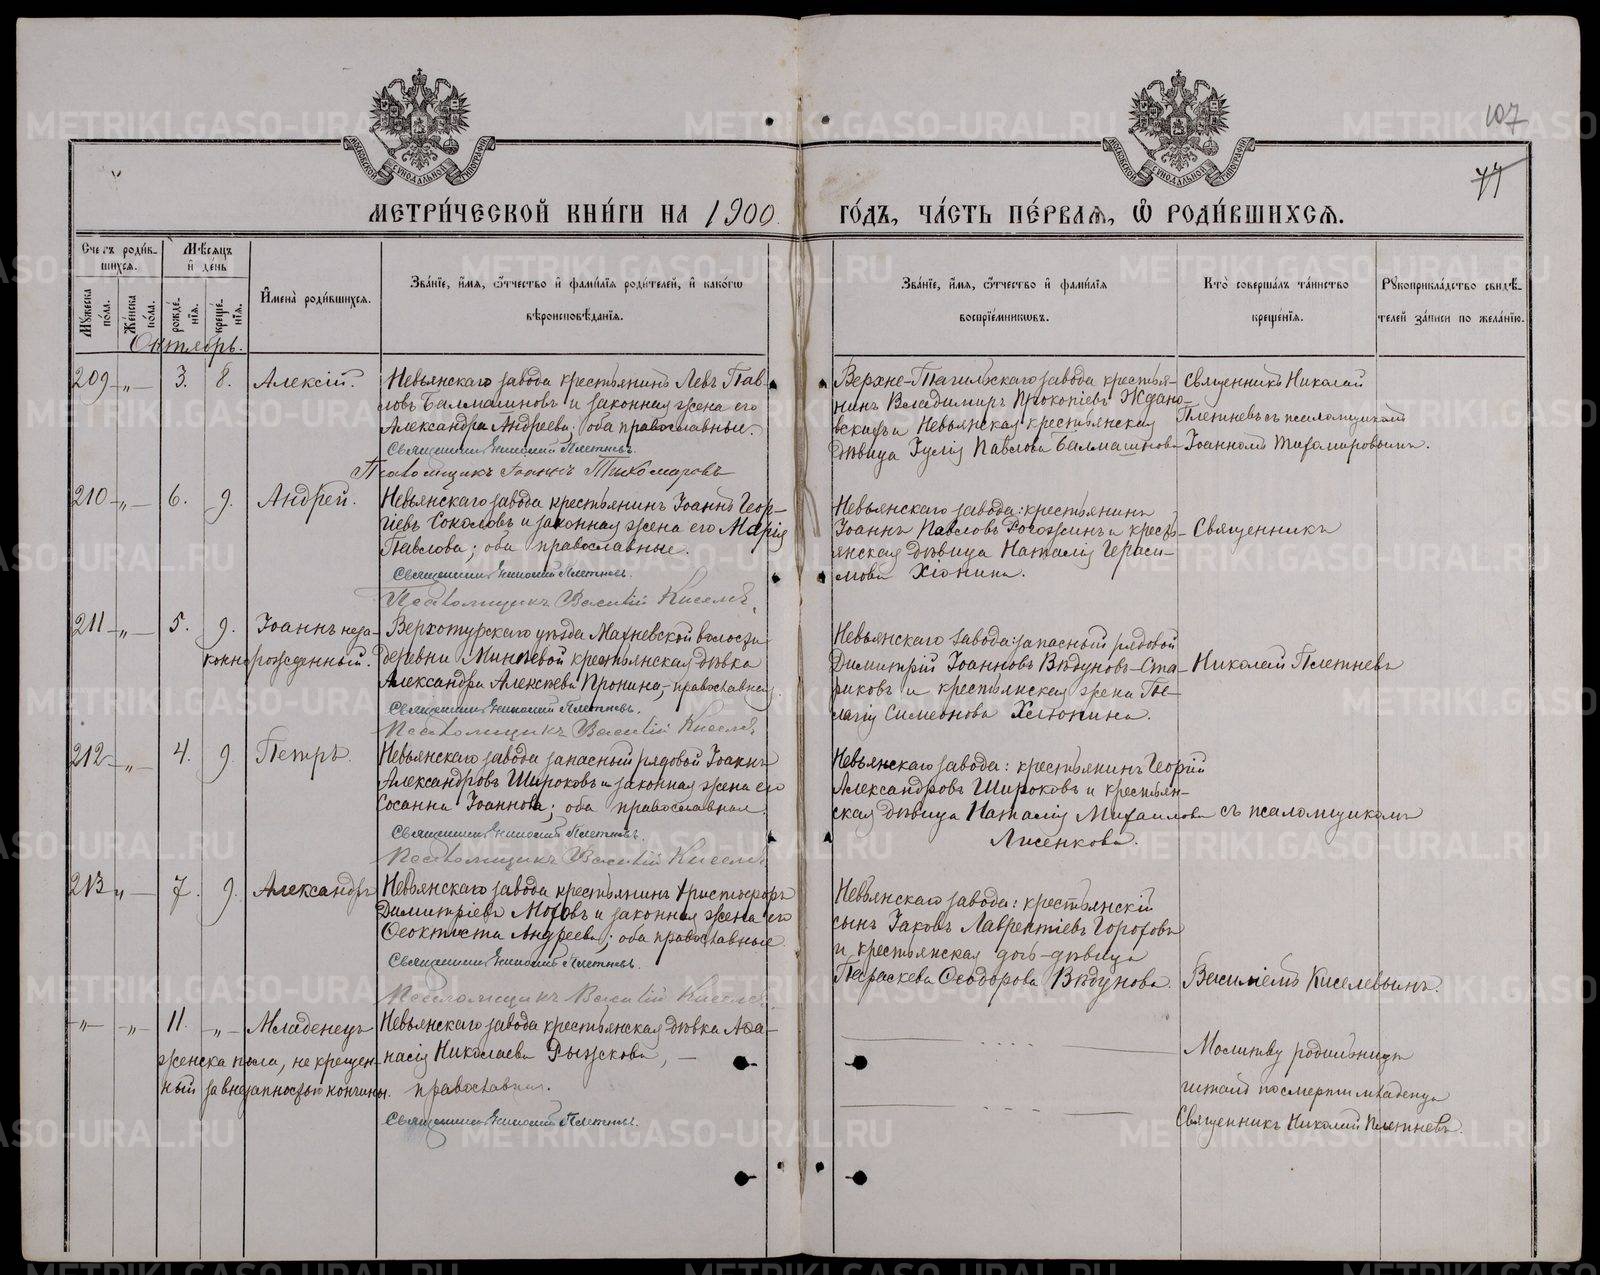 107
77
МЕТРИ́ЧЕСКОЙ КНИ́ГИ НА 1900.
ГО́ДЪ, ЧА́СТЬ ПЕ́РВАѦ, Ѡ҆ РОДИ́ВШИХСѦ.
Счетъ роди́в-
шихсѧ.
Мѣ́сѧцъ
и҆ де́нь
Мꙋ́жеска по́ла.
Же́нска по́ла.
рожде́-
нїѧ.
креще́-
нїѧ.
И҆мена̀ роди́вшихсѧ.
Зва́нїе, и҆́мѧ, ѻ҆́тчество и҆ фами́лїѧ роди́телей, и҆ како́гѡ
вѣроисповѣ́данїѧ.
Зва́нїе, и҆́мѧ, ѻ҆́тчество и҆ фами́лїѧ
воспрїе́мникѡвъ.
Кто̀ соверша́лъ та́инство
креще́нїѧ.
Рꙋкоприкла́дство свидѣ́-
телей за́писи по жела́нїю.
Октябрь.
209 „ 3. 8. Алексій.
Невьянскаго завода крестьянинъ Левъ Пав-
ловъ Балмашновъ и законная жена его
Александра Андреева; оба православные.
Священникъ Николай Плетневъ.
Псаломщикъ Іоаннъ Тихомировъ
Верхне-Тагильскаго завода крестья-
нинъ Владимиръ Прокопіевъ Ждано-
вскихъ и Невьянская крестьянская
дѣвица Іулія Павлова Балмашнова
Священникъ Николай
Плетневъ съ псаломщикомъ
Іоанномъ Тихомировымъ.
210 „ 6. 9. Андрей.
Невьянскаго завода крестьянинъ Іоаннъ Геор-
гіевъ Соколовъ и законная жена его Марія
Павлова; оба православные.
Священникъ Николай Плетневъ.
Псаломщикъ Василій Киселевъ
Невьянскаго завода: крестьянинъ
Іоаннъ Павловъ Рогожинъ и кресть-
янская дѣвица Наталія Гераси-
мова Хіонина.
Священникъ
211 „ 5. 9. Іоаннъ неза-
коннорожденный.
Верхотурскаго уѣзда Махневской волости
деревни Минѣевой крестьянская дѣвка
Александра Алексѣева Пронина, православная.
Священникъ Николай Плетневъ.
Псаломщикъ Василій Киселевъ
Невьянскаго завода: запасный рядовой
Димитрій Іоанновъ Вѣдуновъ-Ста-
риковъ и крестьянская жена Пе-
лагія Симеонова Хлюпина.
Николай Плетневъ
212 „ 4. 9. Петръ.
Невьянскаго завода запасный рядовой Іоаннъ
Александровъ Широковъ и законная жена его
Сосанна Іоаннова; оба православные.
Священникъ Николай Плетневъ.
Псаломщикъ Василій Киселевъ
Невьянскаго завода: крестьянинъ Георгій
Александровъ Широковъ и крестьян-
ская дѣвица Наталія Михаилова
Лисенкова.
съ псаломщикомъ
213 „ 7. 9. Александръ
Невьянскаго завода крестьянинъ Христофоръ
Димитріевъ Моховъ и законная жена его
Ѳеоктиста Андреева; оба православные
Священникъ Николай Плетневъ.
Псаломщикъ Василій Киселевъ
Невьянскаго завода: крестьянскій
сынъ Іаковъ Лаврентіевъ Гороховъ
и крестьянская дочь-дѣвица
Параскева Ѳеодорова Вѣдунова.
Василіемъ Киселевымъ.
„ „ 11. „ Младенецъ
женска пола, не крещен-
ный за внезапностью кончины.
Невьянскаго завода крестьянская дѣвка Аѳа-
насія Николаева Рыжкова,
православная.
Священникъ Николай Плетневъ.
Молитву родильницѣ
читалъ по смерти младенца
Священникъ Николай Плетневъ.